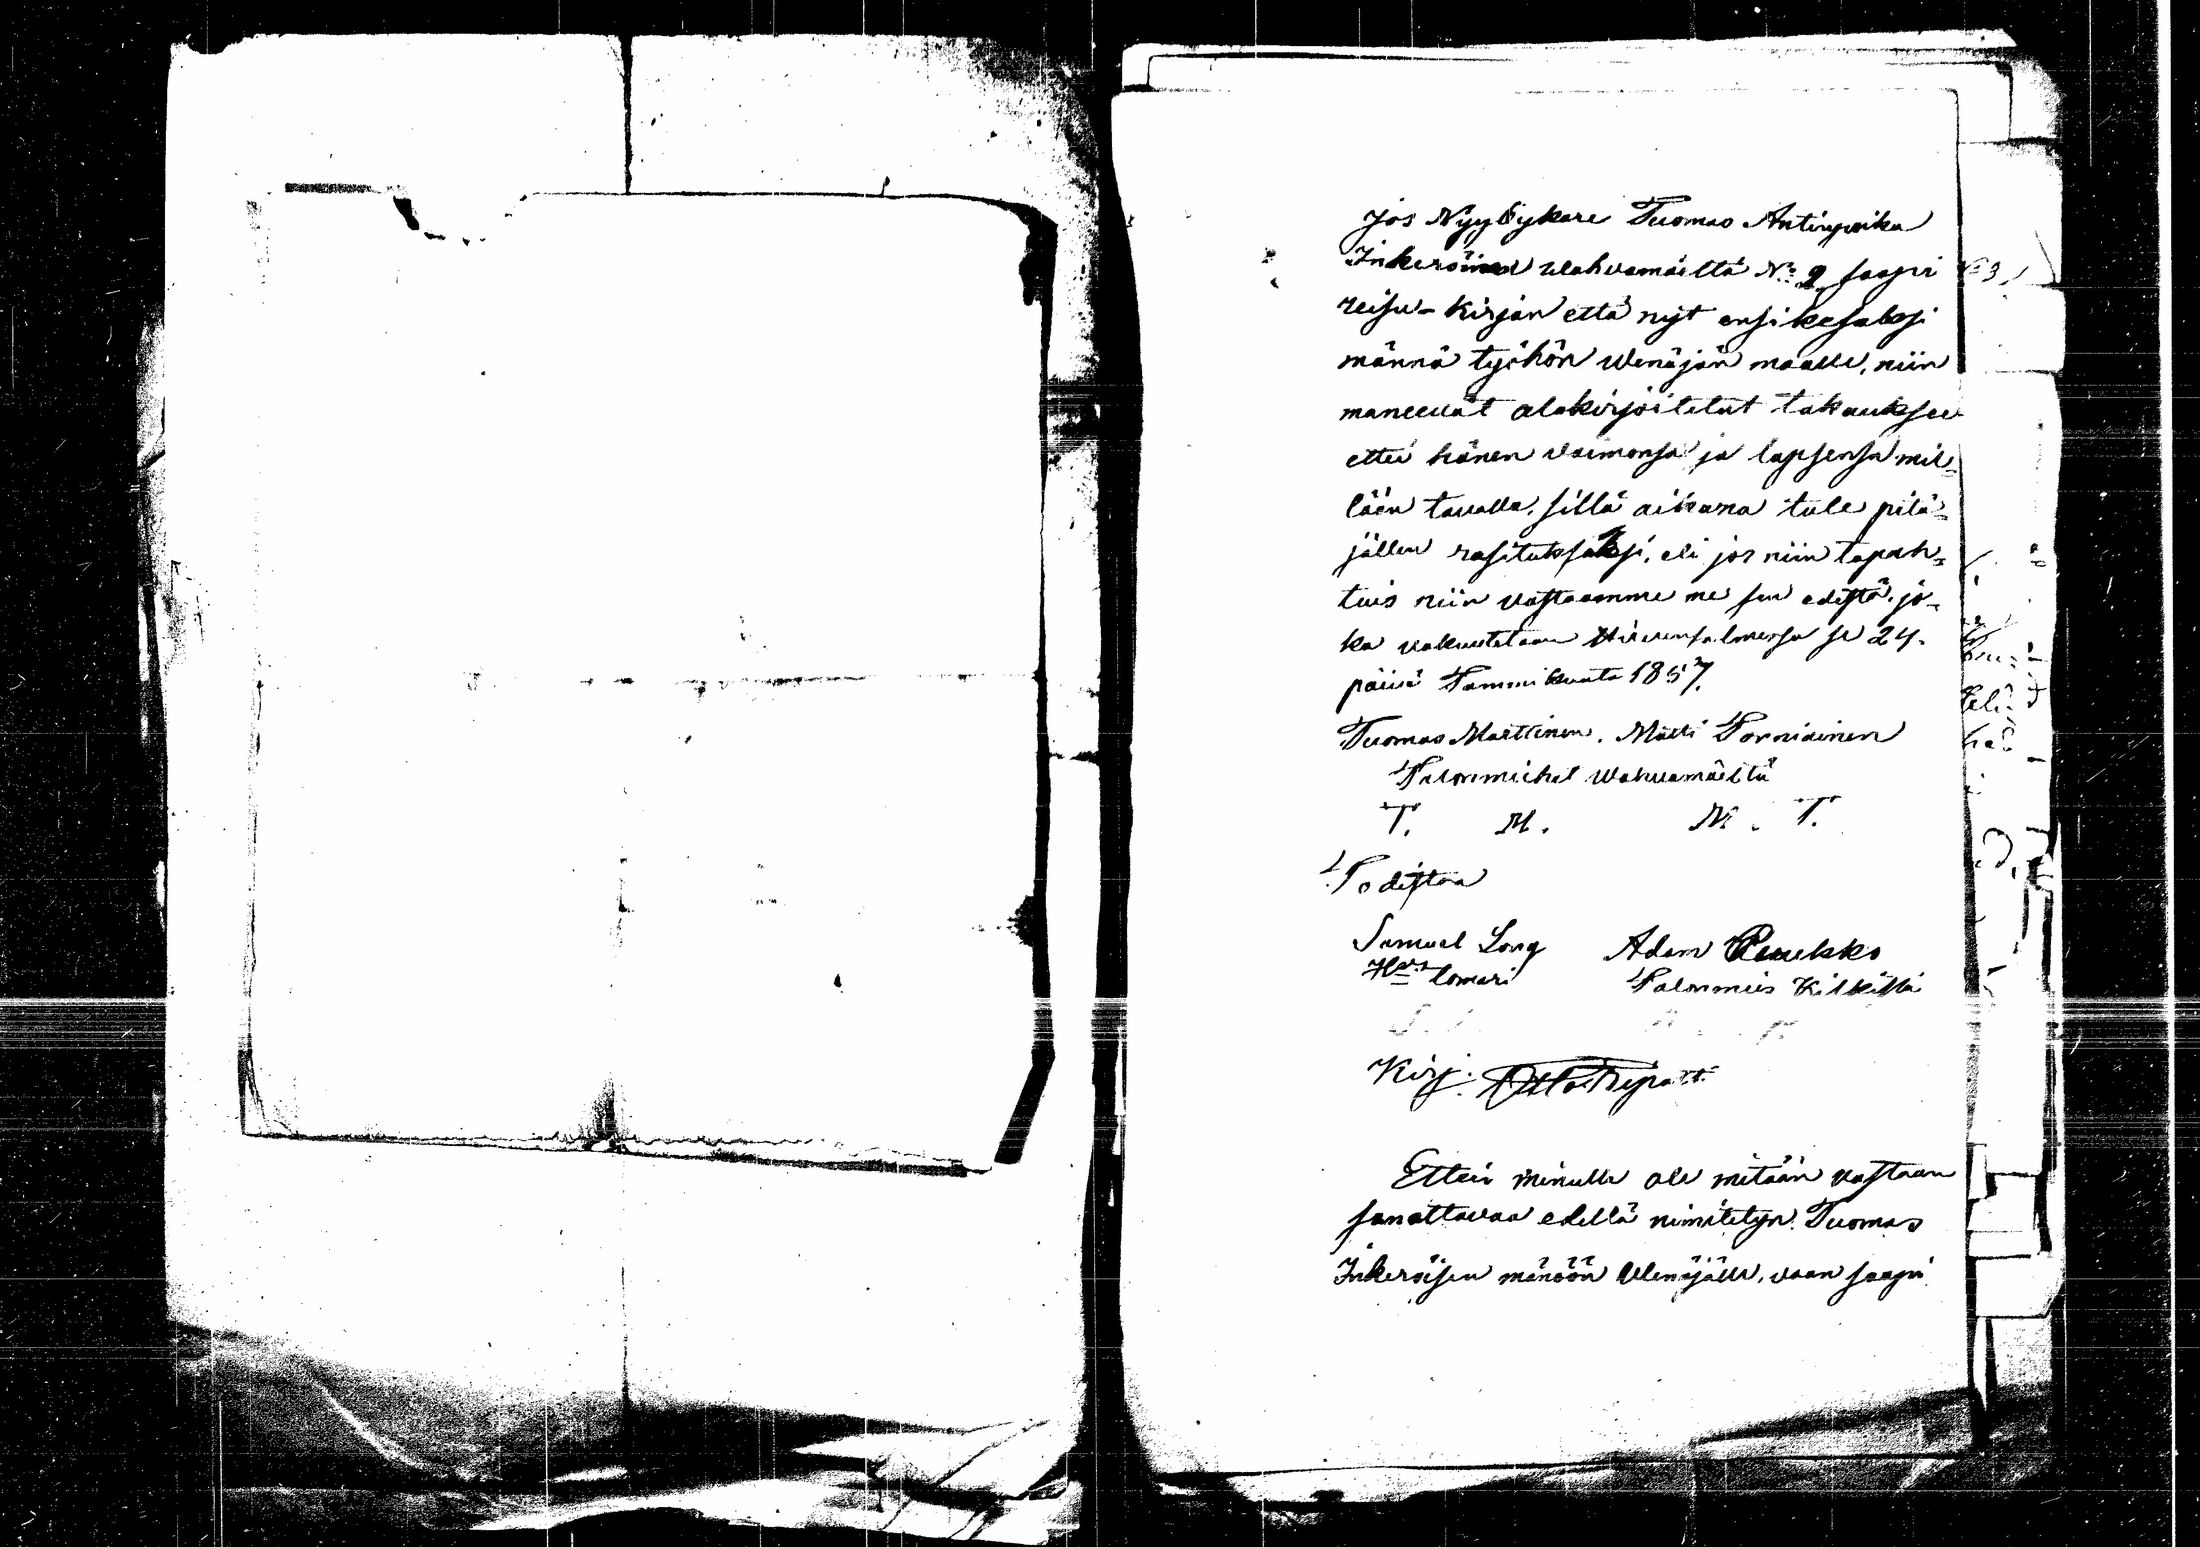 Jos Nyybykare Tuomas Antinpoika
Inkeröinen Wahvamäeltä No 2 saapi
reisu-kirjan että nyt ensikesäksi
männä työhön Wenäjän maalle, niin
maneevat alakirjoitetut takauksen
ettei hänen vaimonsa ja lapsensa mil=
lään tavalla, sillä aikana tule pitä=
jällen rasituksaksi, eli jos niin tapah=
tuis niin vastaamme me sen edestä, jo=
ka vakuutetaan Hirvensalmessa se 24.
päivä Tammikuuta 1857.
Tuomas Marttinen, Matti Torniainen
Talonmiehet Wahvamäeltä
T. M. M. T.
Todistaa
Samuel Long Adam Peuekko
lomari Talonmies Kilkillä
Kirj. Otto
Ettei minulla ole mitään vastaan
sanottavaa edellä nimitetyn Tuomas
Inkeröisen mänöön Wenäjälle, vaan saapi